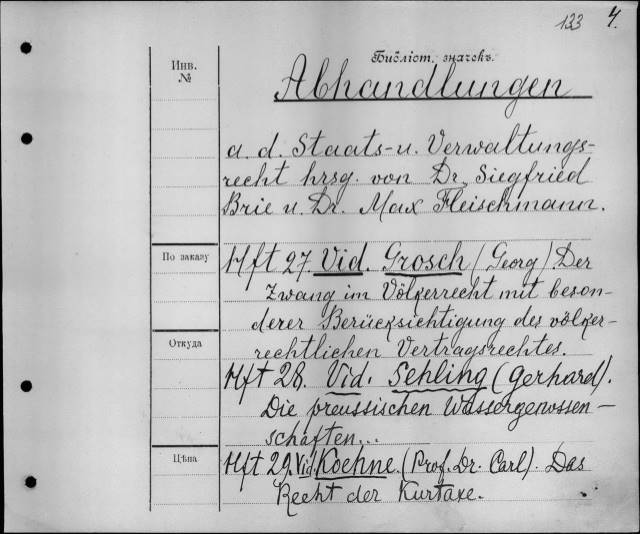 133 4.
Инв.
№
Библіот. значекъ.
Abhandlungen
a. d. Staats- u. Verwaltungs-
recht hrsg. von Dr. Siegfried
Brie u. Dr. Max Fleischmann.
По заказу
Hft 27. Vid. Grosch (Georg) Der
Zwang im Völkerrecht mit beson-
derer Berücksichtigung des völker-
rechtlichen Vertragsrechtes.
Откуда
Hft 28. Vid. Sehling (Gerhard).
Die preussischen Wassergenossen-
schaften...
Цѣна
Hft 29. Vid. Koehne. (Prof. Dr. Carl). Das
Recht der Kurtaxe.